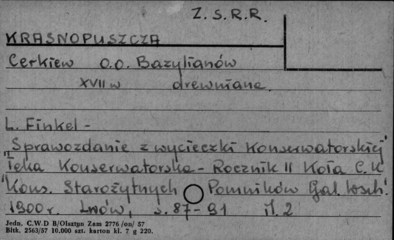 Z. S. R. R.
KRASNOPUSZCZA
Cerkiew o.o. Bazylianów
XVII w drewniane.
L. Finkel -
"Sprawozdanie z wycieczki Konserwatorskiej"
"Teka Konserwatorska - Rocznik II Koła C. K
Kons. Starożytnych Pomników Gal. wsch."
1900 r. Lwów, s. 87-91 il. 2
Jedn. C.W.D B/Olsztyn Zam 2776 /on/ 57
Bltk. 2563/57 10.000 szt. karton kl. 7 g 220.